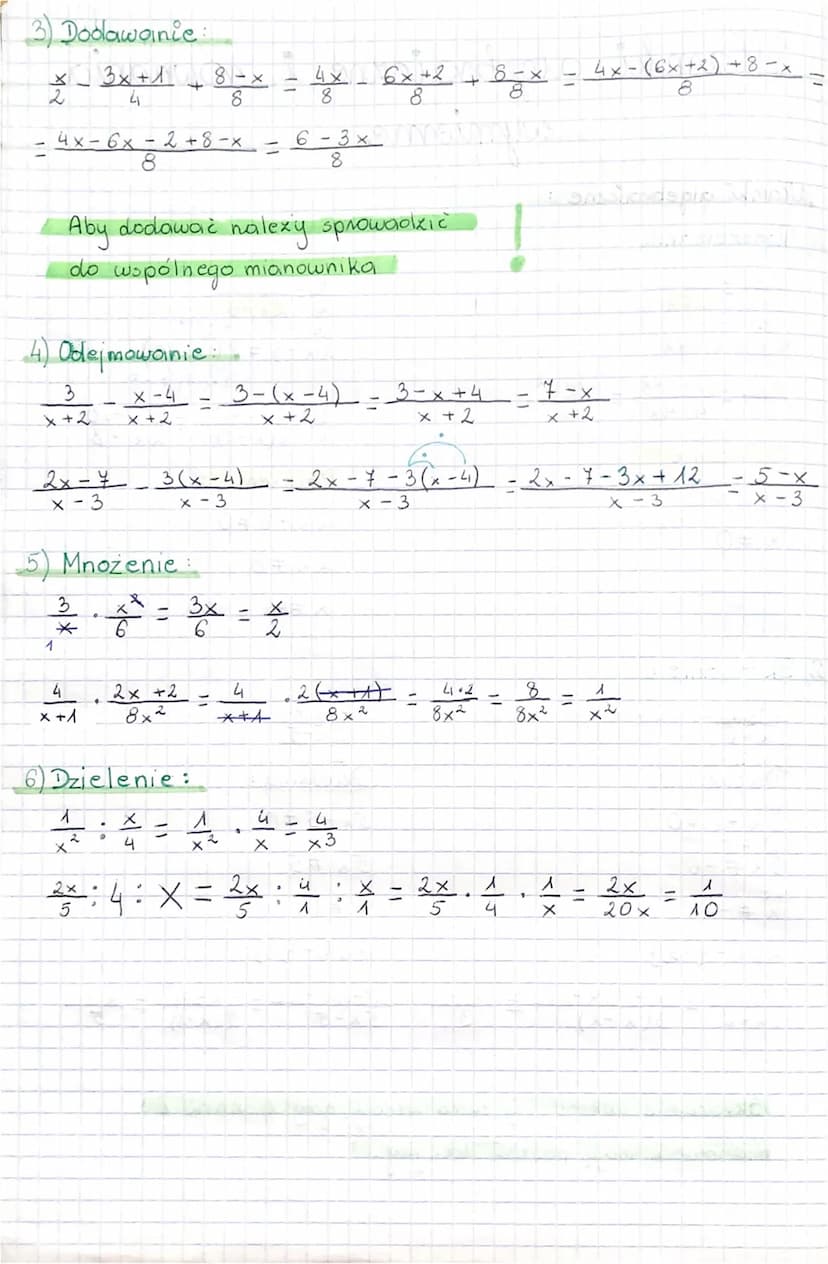 3) Dodawanie:
x/2 - (3x+1)/4 + (8-x)/8 = 4x/8 - (6x+2)/8 + (8-x)/8 = (4x-(6x+2)+8-x)/8 =
= (4x-6x-2+8-x)/8 = (6-3x)/8
Aby dodawać należy sprowadzić !
do wspólnego mianownika
4) Odejmowanie:
3/(x+2) - (x-4)/(x+2) = (3-(x-4))/(x+2) = (3-x+4)/(x+2) = (7-x)/(x+2)
(2x-7)/(x-3) - 3(x-4)/(x-3) = (2x-7-3(x-4))/(x-3) = (2x-7-3x+12)/(x-3) = (5-x)/(x-3)
5) Mnożenie:
3/x · x²/6 = 3x/6 = x/2
1
4/(x+1) · (2x+2)/8x² = 4/(x+1) · 2(x+1)/8x² = 4·2/8x² = 8/8x² = 1/x²
6) Dzielenie:
1/x² : x/4 = 1/x² · 4/x = 4/x³
2x/5 : 4 : x = 2x/5 : 4/1 : x/1 = 2x/5 · 1/4 · 1/x = 2x/20x = 1/10